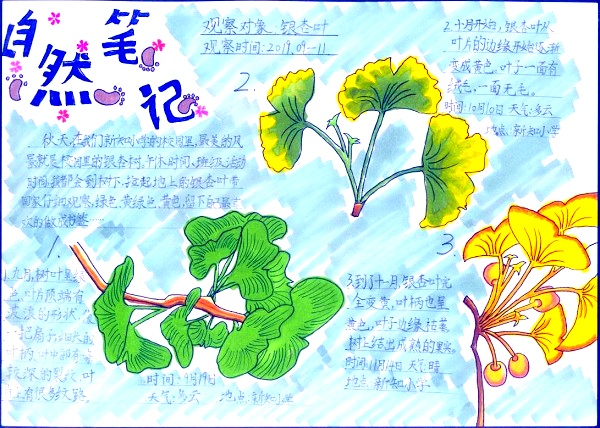 自然笔记
观察对象：银杏叶
观察时间：2019.09—11
秋天在我们新知小学的校园里，最美的风
景就是校园里的银杏树。午休时间、班级活动
时间我都会到树下，捡起地上的银杏叶带
回家仔细观察。绿色、黄绿色、黄色，留下自己最喜
欢的做成书签……
1.
1.九月，树叶呈绿
色，叶片顶端有
波浪的形状，像
一把扇子，
叶柄，叶中部有
较深的裂纹，叶
上有很多纹路。
时间：9月19日
天气：多云 地点：新知小学
2.
2.十月开始，银杏叶从
叶片的边缘开始逐渐
变成黄色，叶子一面有
绒毛，一面无毛。
时间：10月10日 天气：多云
地点：新知小学
3.
3.到了十一月，银杏叶完
全变黄，叶柄也呈
黄色，叶子边缘枯萎，
树上结出成熟的果实。
时间：11月14日 天气：晴
地点：新知小学